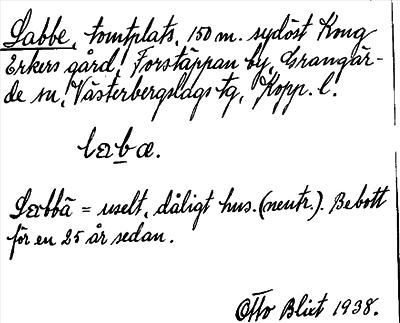 Labbe, tomtplats, 150 m. sydöst Kong
Erkers gård, Forstäppan by, Grangär-
de sn, Västerbergslags tg, Kopp. l.
læbæ.
Læbbä = uselt, dåligt hus. (neutr.). Bebott
för en 25 år sedan.
Otto Blixt 1938.